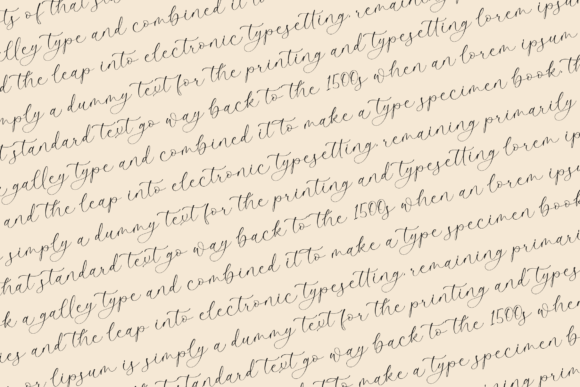 ts of that
alley type and combined it
d the leap into electronic typesetting. remaining
mply a dummy text for the printing and typesetting lorem ipsu
t standard text go way back to the 1500s when an lorem ipsum
galley type and combined it to make a type specimen book th
and the leap into electronic typesetting. remaining primarily
simply a dummy text for the printing and typesetting lorem ip
that standard text go way back to the 1500s when an lorem ipsu
k a galley type and combined it to make a type specimen book
ies and the leap into electronic typesetting. remaining primari
or lipsum is simply a dummy text for the printing and types
t standard text go way back to the 1500s when
to make a type specimen b
remaining prim